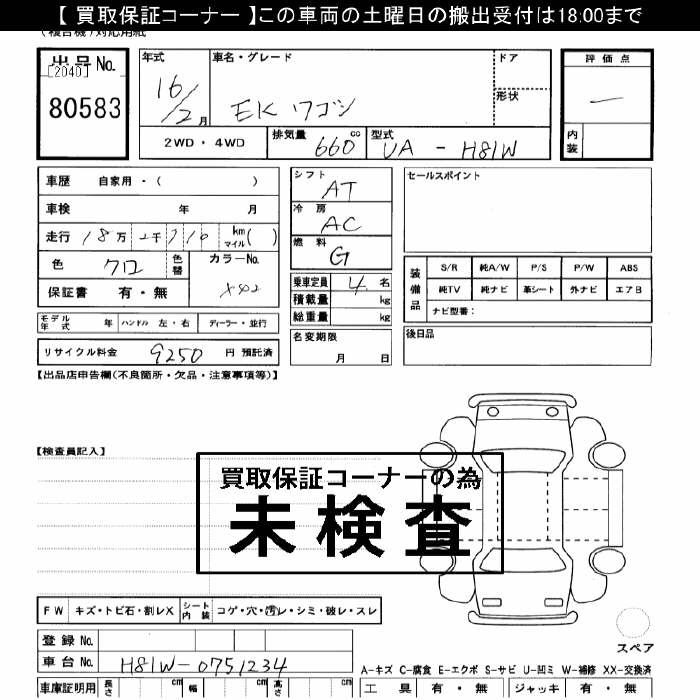 【 買取保証コーナー 】この車両の土曜日の搬出受付は18:00まで
(複合機)対応用紙
出品No.
[2040]
80583
年式
16/2月
車名・グレード
EKワゴン
ドア
形状
2WD・4WD
排気量 660 cc
型式 UA - H81W
評価点
—
内装
車歴 自家用・( )
車検 年 月
走行 18万 2千 710 km マイル( )
色 クロ
色替
カラーNo.
X42
保証書 有・無
シフト AT
冷房 AC
燃料 G
乗車定員 4 名
積載量 kg
総重量 kg
セールスポイント
装備品
S/R 純A/W P/S P/W ABS
純TV 純ナビ 革シート 外ナビ エアB
ナビ型番:
モデル年式 年 ハンドル 左・右 ディーラー・並行
名変期限
月 日
後日品
リサイクル料金 9250 円 預託済
【出品店申告欄(不良箇所・欠品・注意事項等)】
【検査員記入】
買取保証コーナーの為
未検査
FW キズ・トビ石・割レX シート内装 コゲ・穴・汚レ・シミ・破レ・スレ
登録 No.
車台 No. H81W-0751234
スペア
A-キズ C-腐食 E-エクボ S-サビ U-凹ミ W-補修 XX-交換済
車庫証明用 長さ cm 幅 cm 高さ cm
工具 有・無 ジャッキ 有・無